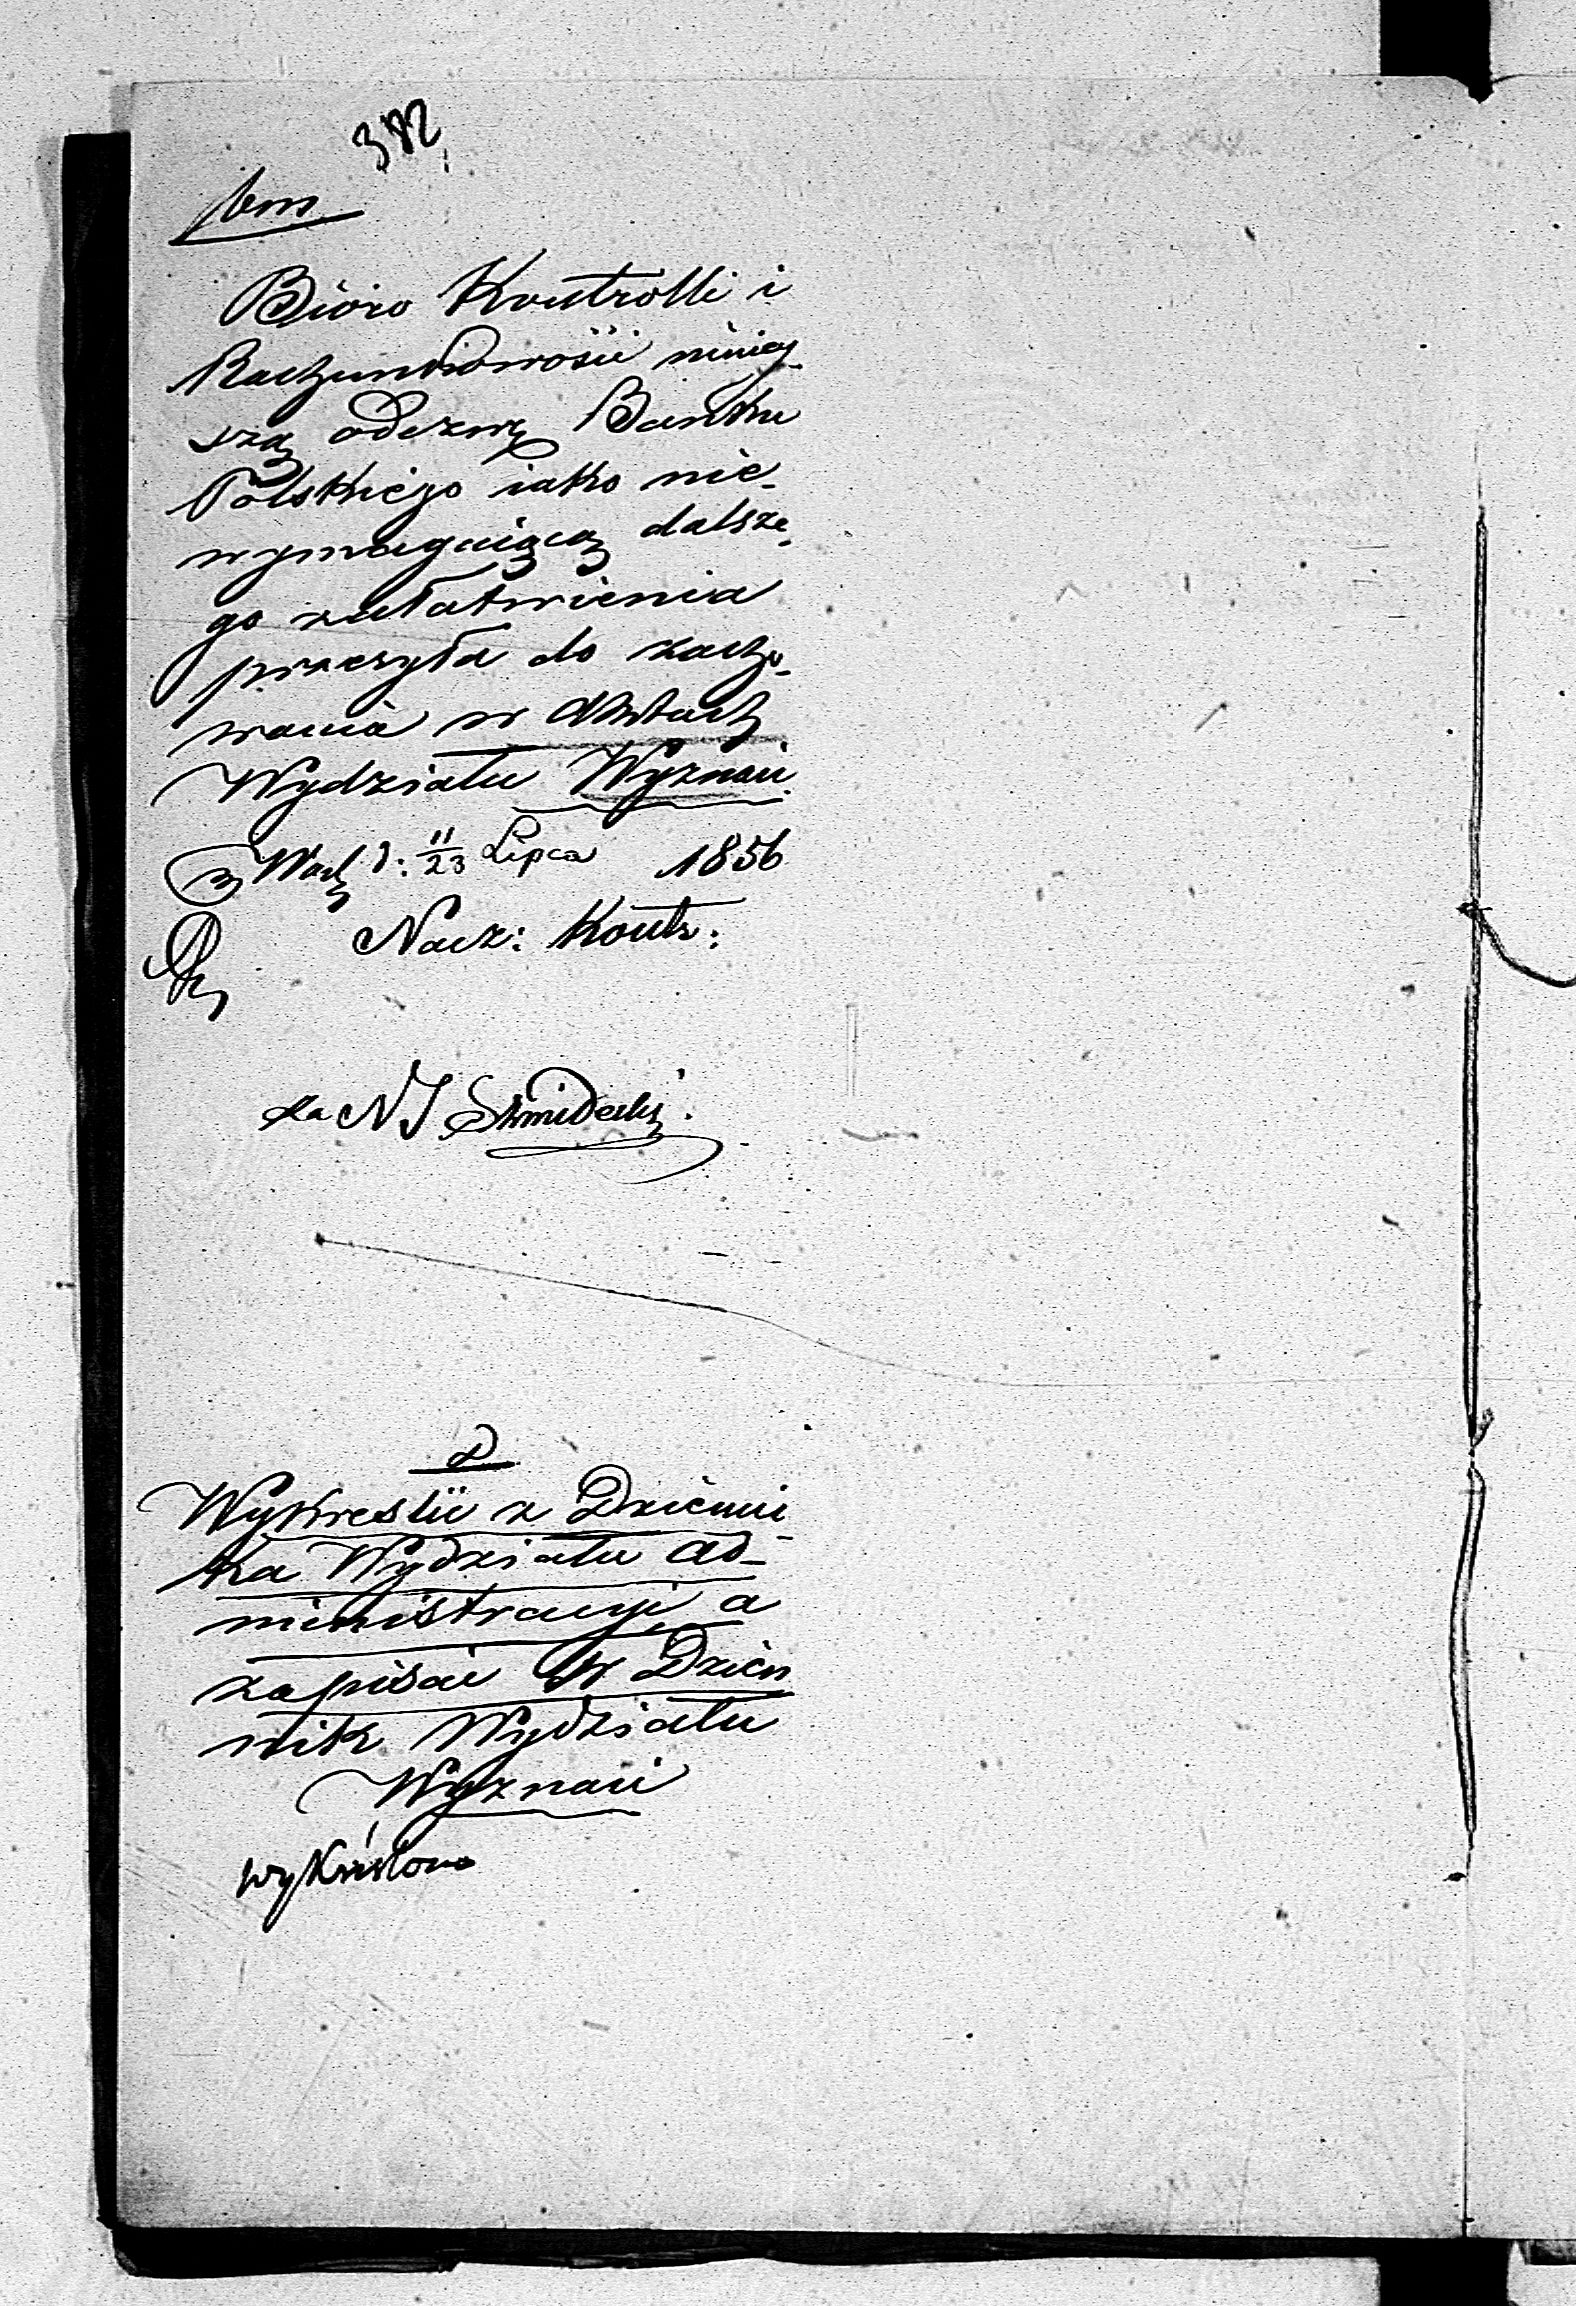 382
Bióro Kontrolli i
Rachunkowości niniej
szą odezwę Banku
Polskiego iako nie-
wymagaiącą dalsze-
go załatwienia
przesyła do zacho-
wania w Aktach
Wydziału Wyznań
Wad: 11/23 Lipca 1856
Nacz: Kontr:
za N J
Wykreslić z Dzienni
ka Wydziału Ad-
ministracyi a
zapisać W Dzien
nik Wydziału
Wyznań
wykréslono